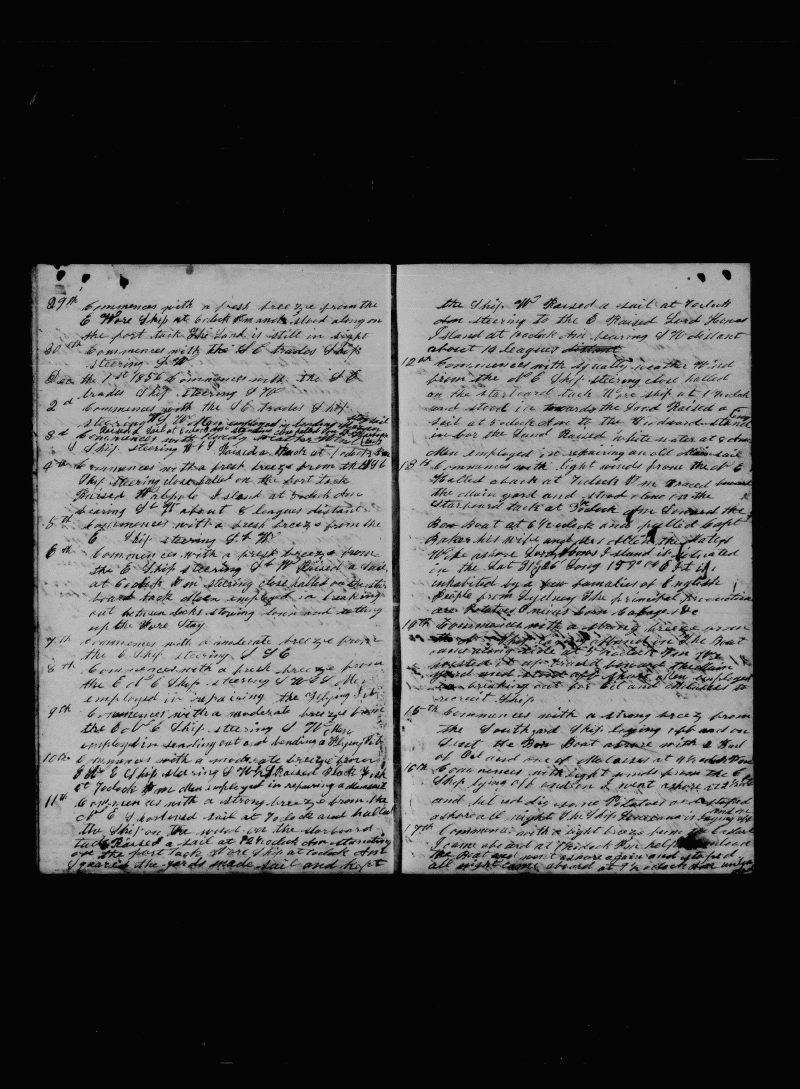 29th Commences with a fresh breeze from the
E Wore Ship at 6 oclock Pm and stood along on
the port tack the Land is still in sight
30th Commences with the S E trades Ship
steering S W
Dec the 1st 1856 Commences with the S E
trades Ship steering S W
2d Commences with the S E trades Ship
steering
3d Commences with cloudy weather
Ship steering W S Raised a
4th Commences with a fresh breeze from the
Ship steering close halled on the port tack
Raised Island at oclock Am
bearing S W about 8 leagues distant
5th Commences with a fresh breeze from the
E Ship steering S W
6th Commences with a fresh breeze from
the E Ship steering S W Raised a sail
at 6 oclock Pm steering close halled on the star
board tack Men employed in breaking
out between decks stowing down and setting
up the Fore Stay
7th Commences with a moderate breeze from
the E Ship steering S S E
8th Commences with a fresh breeze from
the E N E Ship steering S W Men
employed in repairing the Flying Jib
9th Commences with a moderate breeze from
the E N E Ship steering S W Men
employed in sending out and bending a Flying Jib
10th Commences with a moderate breeze from
E N E Ship steering S W Raised Black Fish
at 7 oclock Am Men employed in repairing a mainsail
11th Commences with a strong breeze from the
N E Shortened sail at 7 oclock and halled
the Ship on the wind on the starboard
tack Raised a sail at 12 oclock Am standing
on the port tack Wore Ship at oclock Am
Squared the yards made sail and kept
the Ship W Raised a sail at 7 oclock
Am steering to the E Raised Lord Howes
Island at oclock Am bearing S W distant
about 14 leagues
12th Commences with squally weather Wind
from the N E Ship steering close halled
on the starboard tack Wore ship at 1 oclock
and stood in towards the Land Raised a
sail at 5 oclock Am to the Windward standing
in for the Land Raised white water at 8 Am
Men employed in repairing an old Main sail
13th Commences with light winds from the N E
Halled aback at 7 oclock Pm braced forward
the Main yard and stood along on the
starboard tack at 7 oclock Am Lowered the
Bow Boat at 6 1/2 oclock and pulled Capt
Baker his wife and the Mates
Wife ashore Lord Howes Island is situated
in the Lat 31/36 Long 159.00 E It is
inhabited by a few famalies of English
People from Sydney The principal production
are Potatoes Onions Corn Cabage &c
14th Commences with a strong breeze from
the Ship lying off and on The Boat
came along side at 5 oclock Pm We
hoisted it up braced forward the Main
yard and stood off shore Men employed
in breaking out for Oil and Molasses to
recruit Ship
15th Commences with a strong breeze from
the Southward Ship lying off and on
Sent the Bow Boat ashore with 2 Bbl
of Oil and one of Molasses at 4 1/2 oclock Pm
16th Commences with light winds from the E
Ship lying off and on I went ashore at 2
and helped dig some Potatoes and stopped
ashore all night The Ship laying off and on
17th Commences with a light breeze from the Eastward
I came aboard at 7 oclock Pm helped unload
the Boat and went ashore again and stoped
all night came aboard at 9 oclock Am